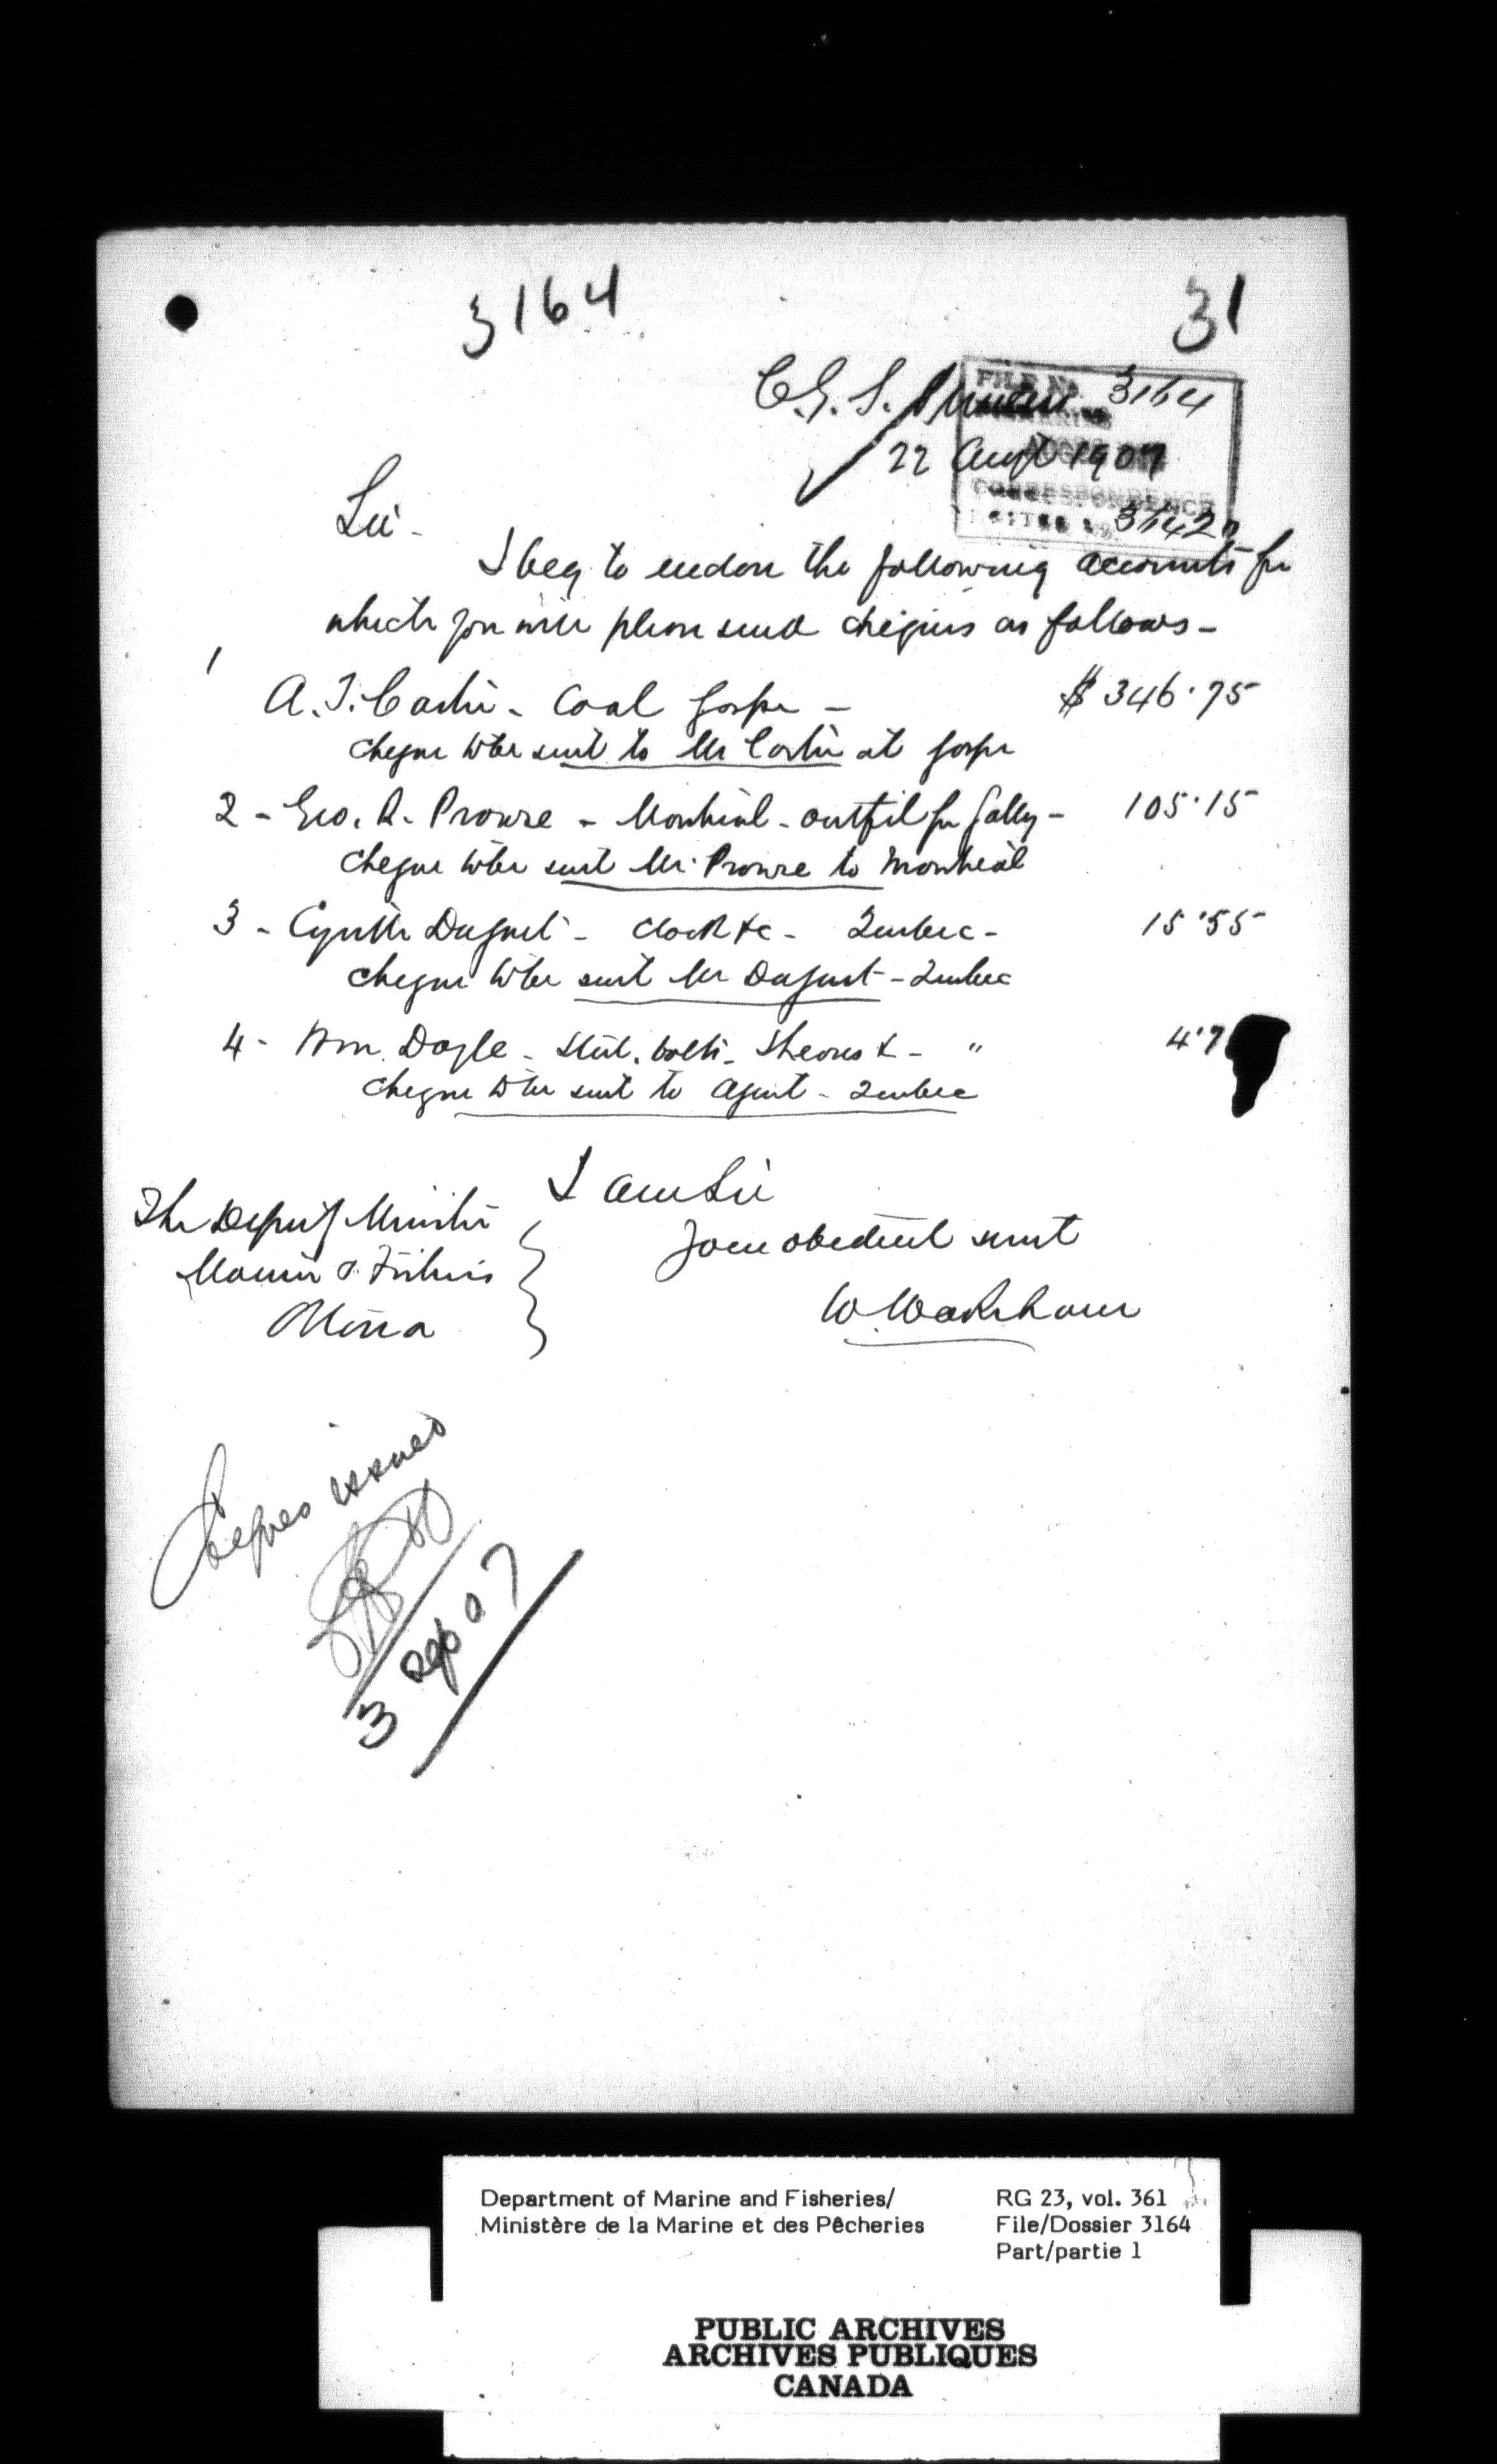 3164
31
C.G.S. Princess
FILE No. 3164
22 Augt 1907
CORRESPONDENCE
Sir -
I beg to enclose the following accounts for
which you will please send cheques as follows -
1
A. T. Carter - Coal Gaspe - $ 346.75
cheque to be sent to Mr Carter at Gaspe
2 - Geo. R. Prowse - Montreal - outfit for galley - 105.15
cheque to be sent Mr. Prowse to Montreal
3 - Duquet - clock &c - Quebec - 15.55
cheque to be sent Mr Duquet - Quebec
4 - Wm. Doyle - bolts - Sheaves & - " 4.7
cheque to be sent to Agent - Quebec
I am Sir
The Deputy Minister
Your obedient servt
Marine & Fisheries
W. Wakeham
Ottawa
Cheques issued
3 Sep 07
Department of Marine and Fisheries/
Ministère de la Marine et des Pêcheries
RG 23, vol. 361
File/Dossier 3164
Part/partie 1
PUBLIC ARCHIVES
ARCHIVES PUBLIQUES
CANADA